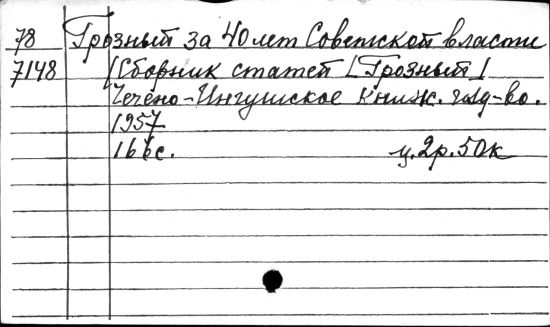 78 Грозный за 40 лет Советской власти
7148 [Сборник статей [Грозный]
Чечено-Ингушское книж. изд-во.
1957
166с. ц.2р.50к